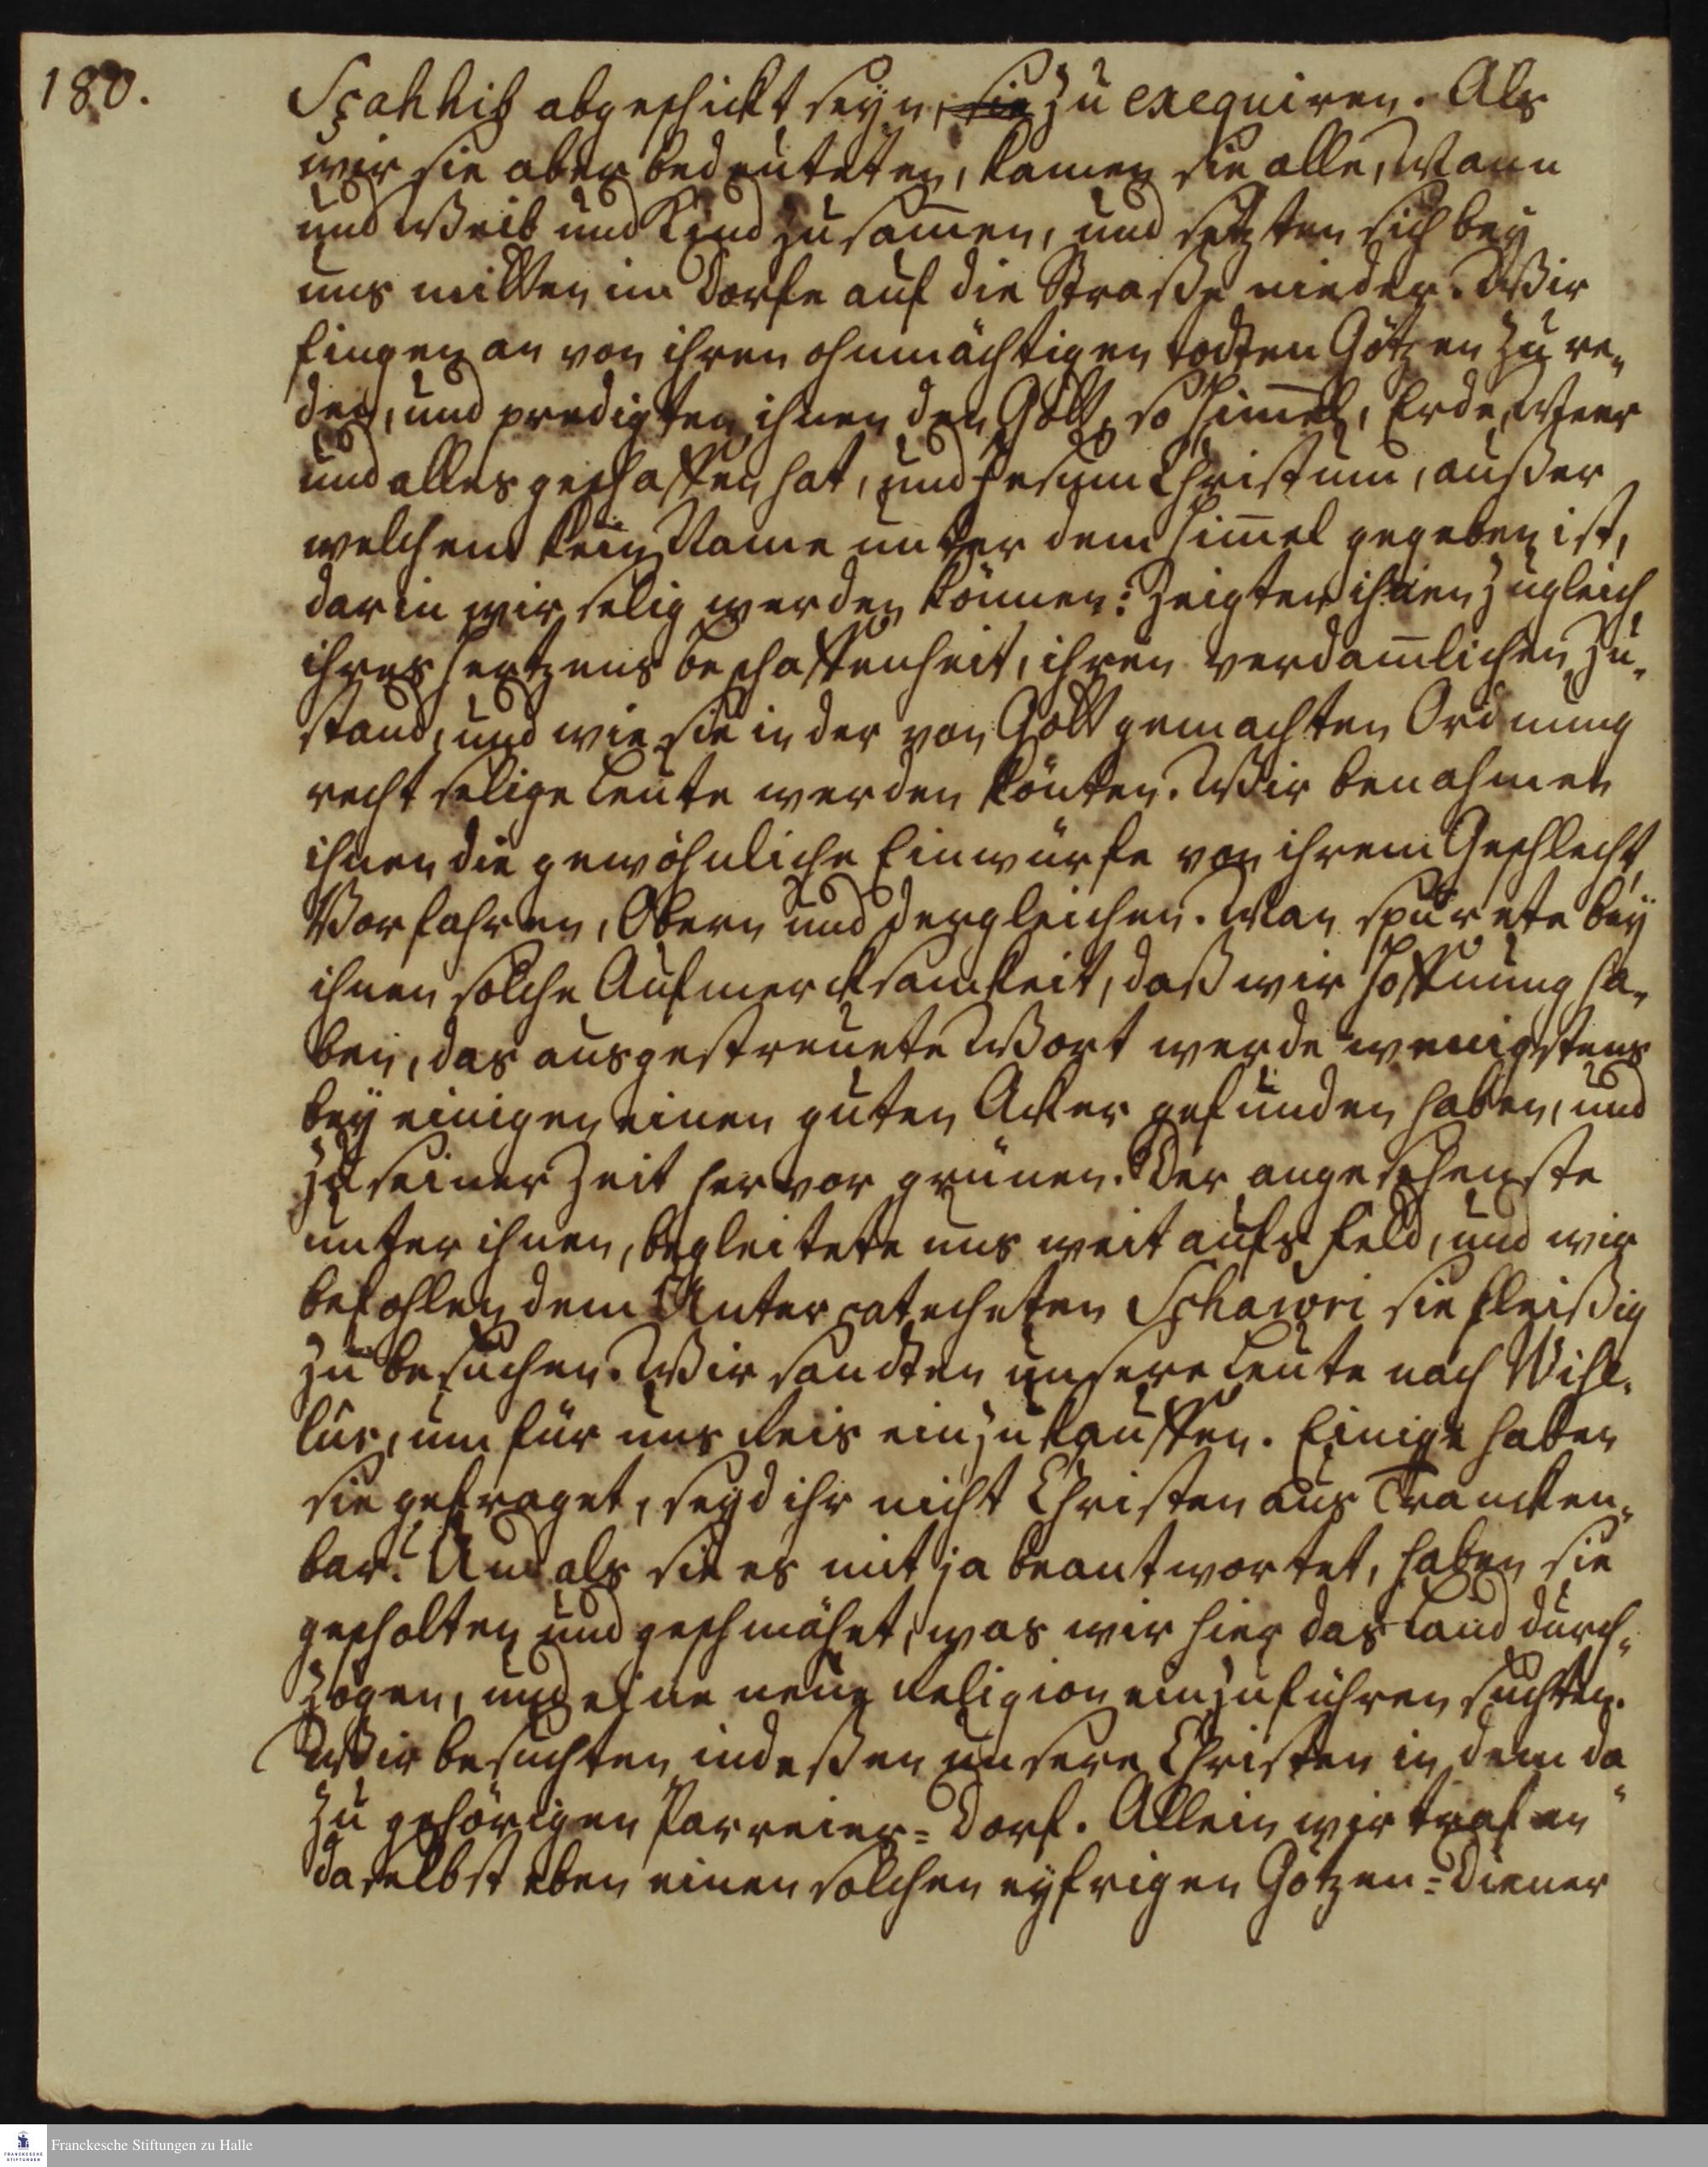 180.
Sçahhib abgeschickt seyn, sie zu exequiren. Als
wir sie aber bedeuteten, kamen sie alle, Mann
und Weib und Kind zusam̅en, und setzten sich bey
uns mitten im Dorfe auf die Straße nieder. Wir
fingen an von ihren ohnmächtigen todten Götzen zu re-
den, und predigten ihnen den Gott, so Him̅el, Erde, Meer
und alles geschaffen hat, und Jesum Christum, außer
welchem kein Name unter dem Him̅el gegeben ist,
darin wir selig werden können: Zeigten ihnen zugleich
ihres Hertzens Beschaffenheit, ihren verdam̅lichen Zu-
stand, und wie sie in der von Gott gemachten Ordnung
recht selige Leute werden könten. Wir benahmen
ihnen die gewöhnliche Einwürfe von ihrem Geschlecht,
Vorfahren, Obern und dergleichen. Man spürete bey
ihnen solche Aufmercksamkeit, daß wir Hoffnung ha-
ben, das ausgestreuete Wort werde wenigstens
bey einigen einen guten Acker gefunden haben, und
zu seiner Zeit hervor grünen. Der angesehenste
unter ihnen, begleitete uns weit aufs Feld, und wir
befohlen dem Untercatecheten Schawri sie fleißig
zu besuchen. Wir sandten unsere Leute nach Wisl-
lur, um für uns Reis einzukauffen. Einige haben
sie gefraget, seyd ihr nicht Christen aus Trancken-
bar? Und als sie es mit ja beantwortet, haben sie
gescholten und geschmähet, was wir hier das Land durch-
zögen, und eine neue Religion einzuführen suchten.
Wir besuchten indeßen unsere Christen in dem da
zu gehörigen Parreier-Dorf. Allein wir trafen
daselbst eben einen solchen eyfrigen Götzen-Diener
Franckesche Stiftungen zu Halle